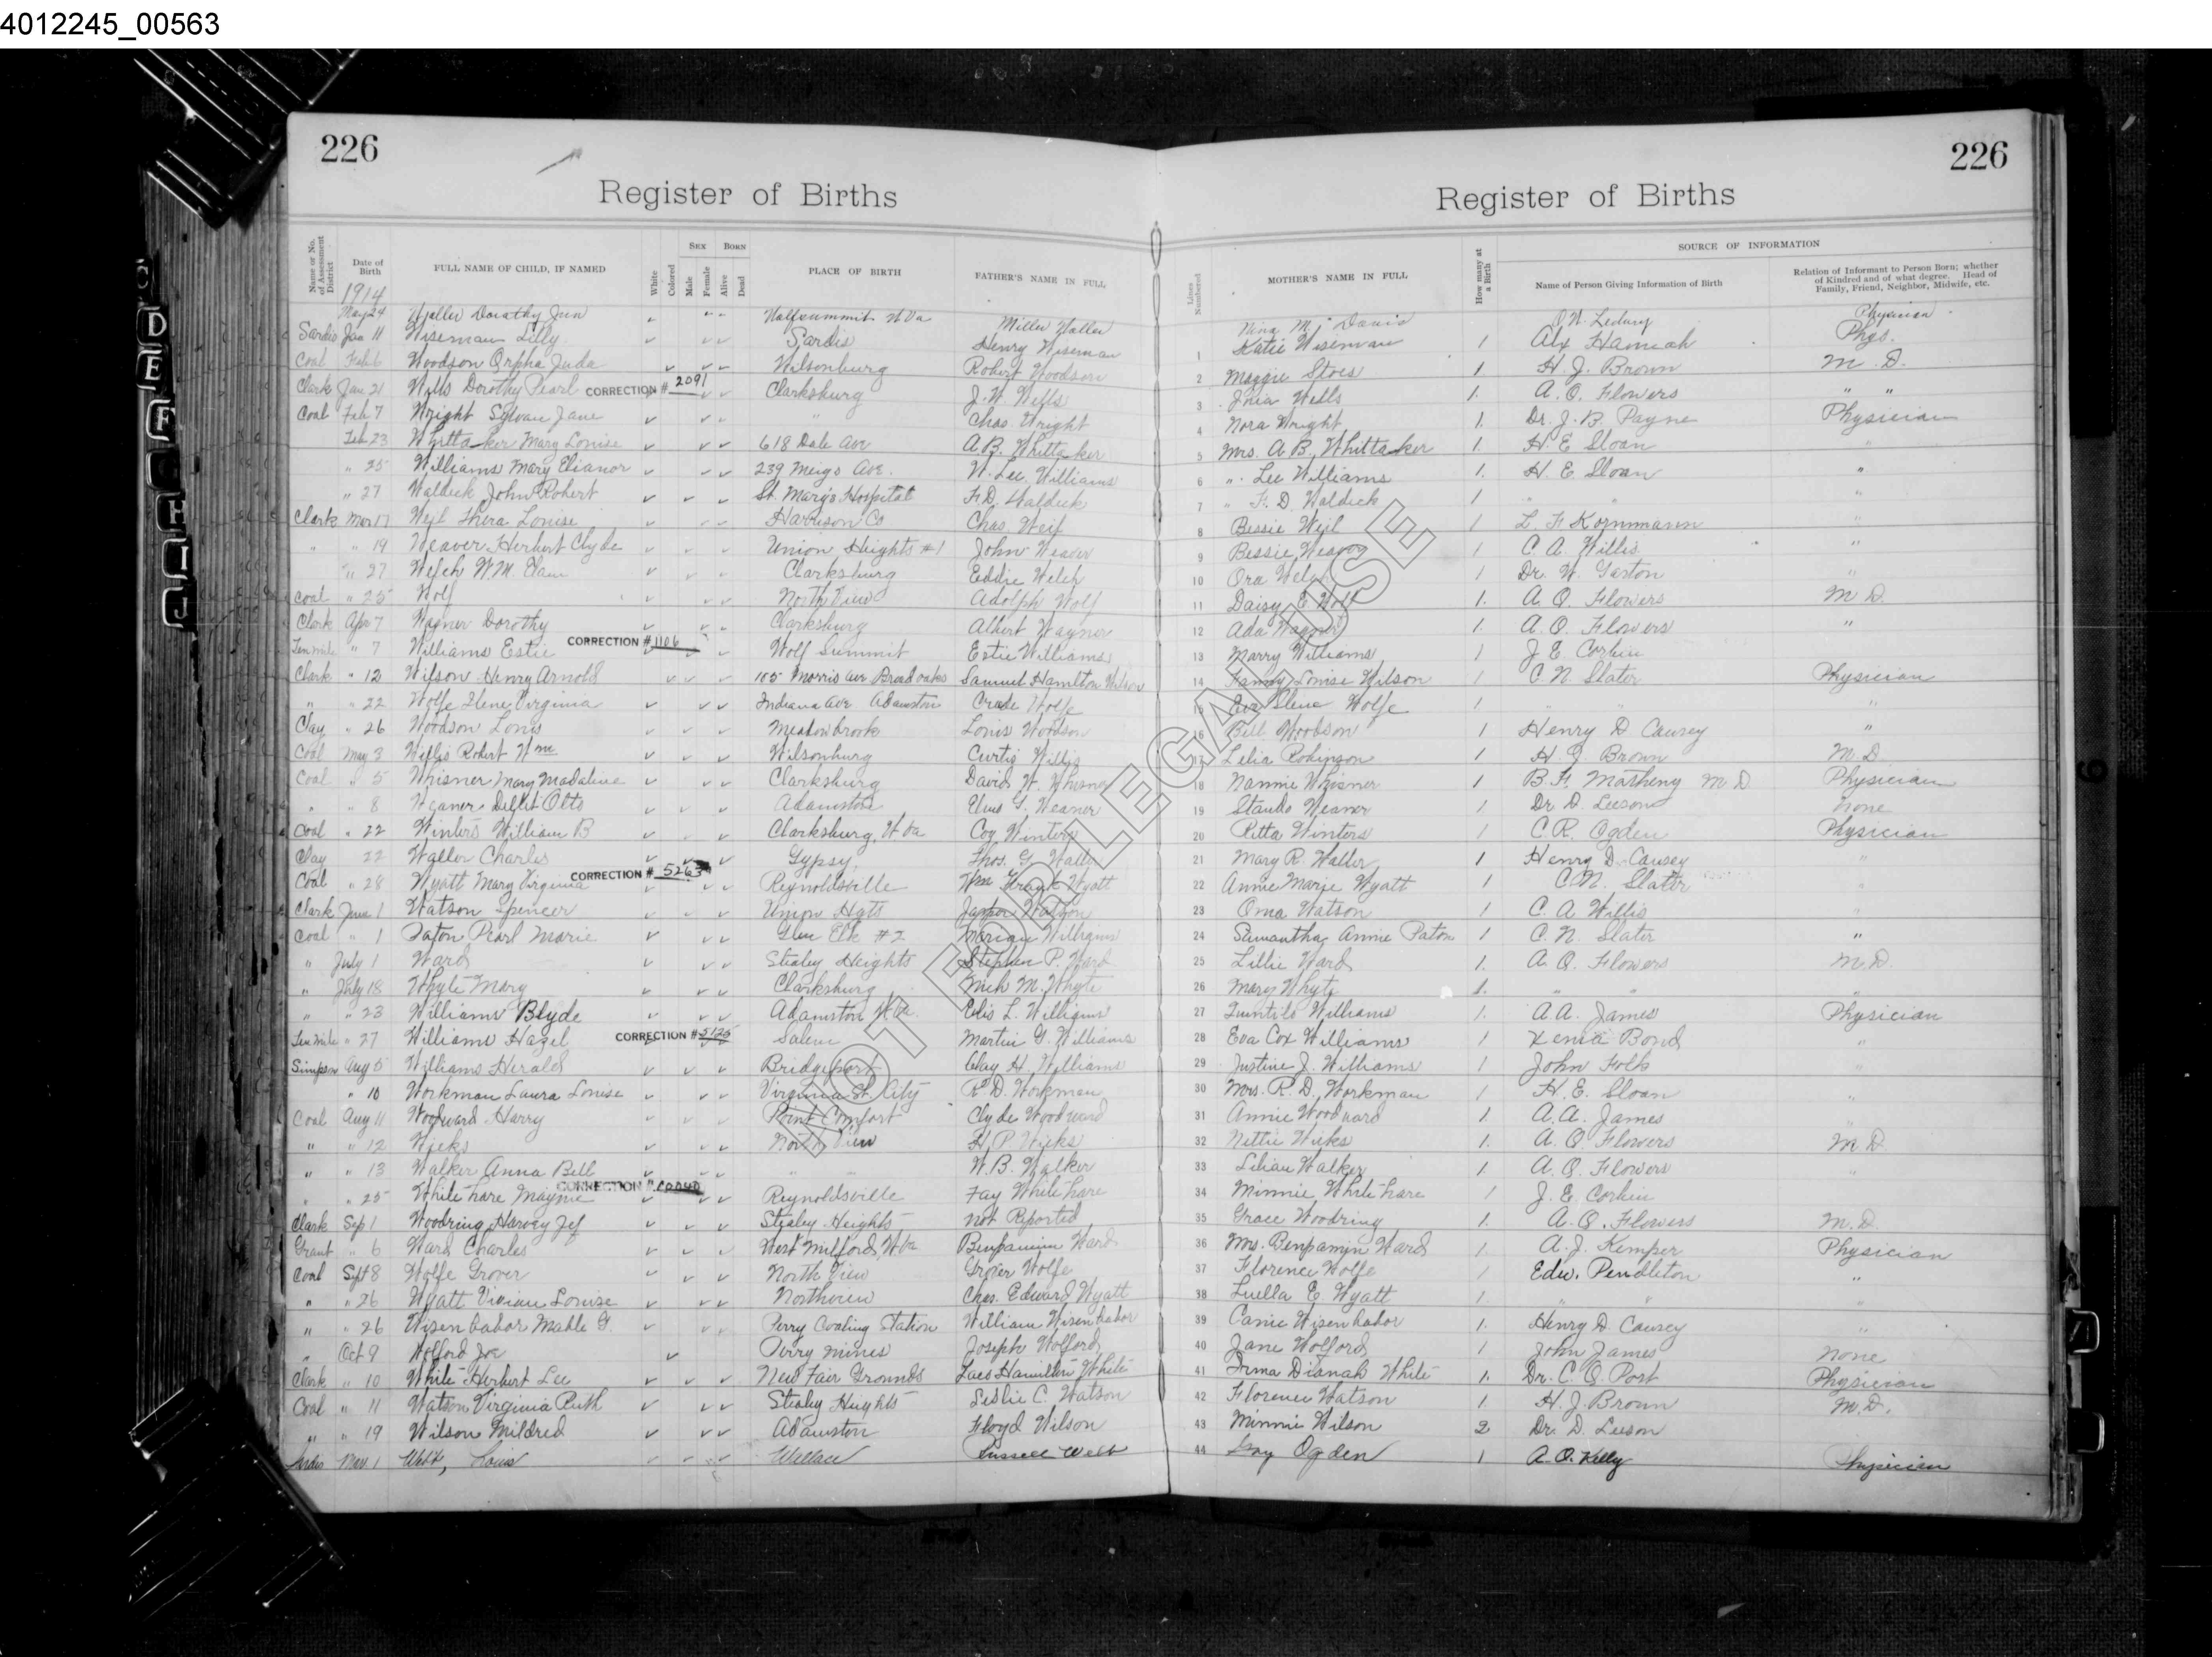 4012245_00563
226
226
Register of Births
Register of Births
Name or No. of Assessment District
Date of Birth
FULL NAME OF CHILD, IF NAMED
White
Colored
SEX
Male
Female
BORN
Alive
Dead
PLACE OF BIRTH
FATHER'S NAME IN FULL
Lines Numbered
MOTHER'S NAME IN FULL
How many at a Birth
SOURCE OF INFORMATION
Name of Person Giving Information of Birth
Relation of Informant to Person Born; whether of Kindred and of what degree. Head of Family, Friend, Neighbor, Midwife, etc.
1914
May 24 Waller Dorothy Wolfsummit W Va Miller Waller Nina M. Davis Physician
Sardis Jan 11 Wiseman Lilly Sardis Henry Wiseman 1 Katie Wiseman 1 Alx Hannah Phys.
Coal Feb 6 Woodson Orpha Juda Wilsonburg Robert Woodson 2 Maggie 1 H. J. Brown M.D.
Clark Jan 21 Wills Dorothy Pearl CORRECTION # 2091 Clarksburg J. W. Wells 3 Wells 1. A. O. Flowers " "
Coal Feb 7 Wright Jane " Chas. Wright 4 Nora Wright 1. Dr. J. B. Payne Physician
Feb 23 Whittaker Mary Louise 618 Dale Ave A. B. Whittaker 5 Mrs. A B. Whittaker 1. H. E Sloan "
" 25 Williams Mary Elianor 239 Meigs Ave. W. Lee Williams 6 " Lee Williams 1. H. E. Sloan "
" 27 Waldeck John Robert St. Mary's Hospital F. D. Waldeck 7 " F. D. Waldeck 1 " " "
Clark Mar 17 Weil Louise Harrison Co Chas. Weil 8 Bessie Weil 1 L. F. Kornmann "
" " 19 Weaver Herbert Clyde Union Heights #1 John Weaver 9 Bessie Weaver 1 C. A. Willis "
" 27 Welch W.M. Clarksburg Eddie Welch 10 Ora Welch 1 Dr. W. Gaston "
Coal " 25 Wolf North View Adolph Wolf 11 Daisy E Wolf 1. A. O. Flowers M D.
Clark Apr 7 Wagner Dorothy Clarksburg Albert Wagner 12 Ada Wagner 1. A. O. Flowers "
Ten mile " 7 Williams Estie CORRECTION # 1106 Wolf Summit Estie Williams 13 Marry Williams 1 J. E. Corbin
Clark " 12 Wilson Henry Arnold 105 Morris ave Broad oaks Samuel Hamilton Wilson 14 Fanny Louise Wilson 1 C. N. Slater Physician
" " 22 Wolfe Ilene Virginia Indiana Ave Adamston Wolfe 15 Wolfe 1 " " "
Clay " 26 Woodson Louis Meadowbrook Louis Woodson 16 Bell Woodson 1 Henry D Causey "
Coal May 3 Willis Robert Wm Wilsonburg Curtis Willis 17 Lelia Robinson 1 H. J. Brown M.D.
Coal " 5 Whisner Mary Madaline Clarksburg David W. Whisner 18 Nannie Whisner 1 B. F. Matheny M D Physician
" " 8 Weaner Otto Adamston G. Weaner 19 Weaner 1 Dr. D. Leeson None
Coal " 22 Winters William B Clarksburg, W Va Coy Winters 20 Ritta Winters 1 C. R. Ogden Physician
Clay 22 Waller Charles Gypsy Thos. G. Waller 21 Mary R. Waller 1 Henry D. Causey "
Coal " 28 Wyatt Mary Virginia CORRECTION # 5263 Reynoldsville Wm Frank Wyatt 22 Annie Marie Wyatt 1 C. N. Slater "
Clark June 1 Watson Spencer Union Hgts Watson 23 Oma Watson 1 C. A. Willis "
Coal " 1 Paton Pearl Marie Glen Elk #2 24 Samantha Annie Paton 1 C. N. Slater "
" July 1 Ward Stealey Heights Stephen P. Ward 25 Lillie Ward 1. A. O. Flowers M.D.
" July 18 Whyte Mary Clarksburg M. Whyte 26 Mary Whyte 1. " " "
" " 23 Williams Blyde Adamston W Va. L. Williams 27 Williams 1. A A. James Physician
Ten Mile " 27 Williams Hazel CORRECTION # 5125 Salem Martin G. Williams 28 Eva Cox Williams 1 Xenia Bond "
Simpson Aug 5 Williams Herald Bridgeport Clay H. Williams 29 Justine J. Williams 1 John Folk "
" 10 Workman Laura Louise Virginia St. City R. D. Workman 30 Mrs. R. D. Workman 1 H. E. Sloan "
Coal Aug 11 Woodward Harry Point Comfort Clyde Woodward 31 Annie Woodward 1. A. A. James "
" " 12 Wicks North View H. P. Wicks 32 Nettie Wicks 1. A. O Flowers M. D.
" " 13 Walker Anna Bell " " W. B. Walker 33 Lilian Walker 1. A. O. Flowers "
" " 25 Whitehare Mayme CORRECTION Reynoldsville Fay Whitehare 34 Minnie Whitehare 1 J. E. Corbin
Clark Sep 1 Woodring Harvey Jef Stealey Heights Not Reported 35 Grace Woodring 1. A. O. Flowers M.D.
Grant " 6 Ward Charles West Milford, W Va Benjamin Ward 36 Mrs. Benjamin Ward 1. A. J. Kemper Physician
Coal Sept 8 Wolfe Grover North View Grover Wolfe 37 Florence Wolfe 1 Edw. Pendleton "
" " 26 Wyatt Vivian Louise Northview Chas. Edward Wyatt 38 Luella E. Wyatt 1 " " "
" " 26 Wisenbabor Mable G. Perry Coaling Station William Wisenbabor 39 Carrie Wisenbabor 1. Henry D Causey "
" Oct 9 Wolford Joe Perry mines Joseph Wolford 40 Jane Wolford 1 John James None
Clark " 10 White Herbert Lee New Fair Grounds Hamilton White 41 Irma Dianah White 1. Dr. C. O. Post Physician
Coal " 11 Watson Virginia Ruth Stealey Heights Leslie C. Watson 42 Florence Watson 1. H. J. Brown M.D.
" " 19 Wilson Mildred Adamston Floyd Wilson 43 Minnie Wilson 2 Dr. D. Leeson
Sardis Mar. 1 Webb, Wallace Russell Webb 44 Ogden 1 A. O. Kelly Physician
NOT FOR LEGAL USE
D
E
F
G
H
I
J